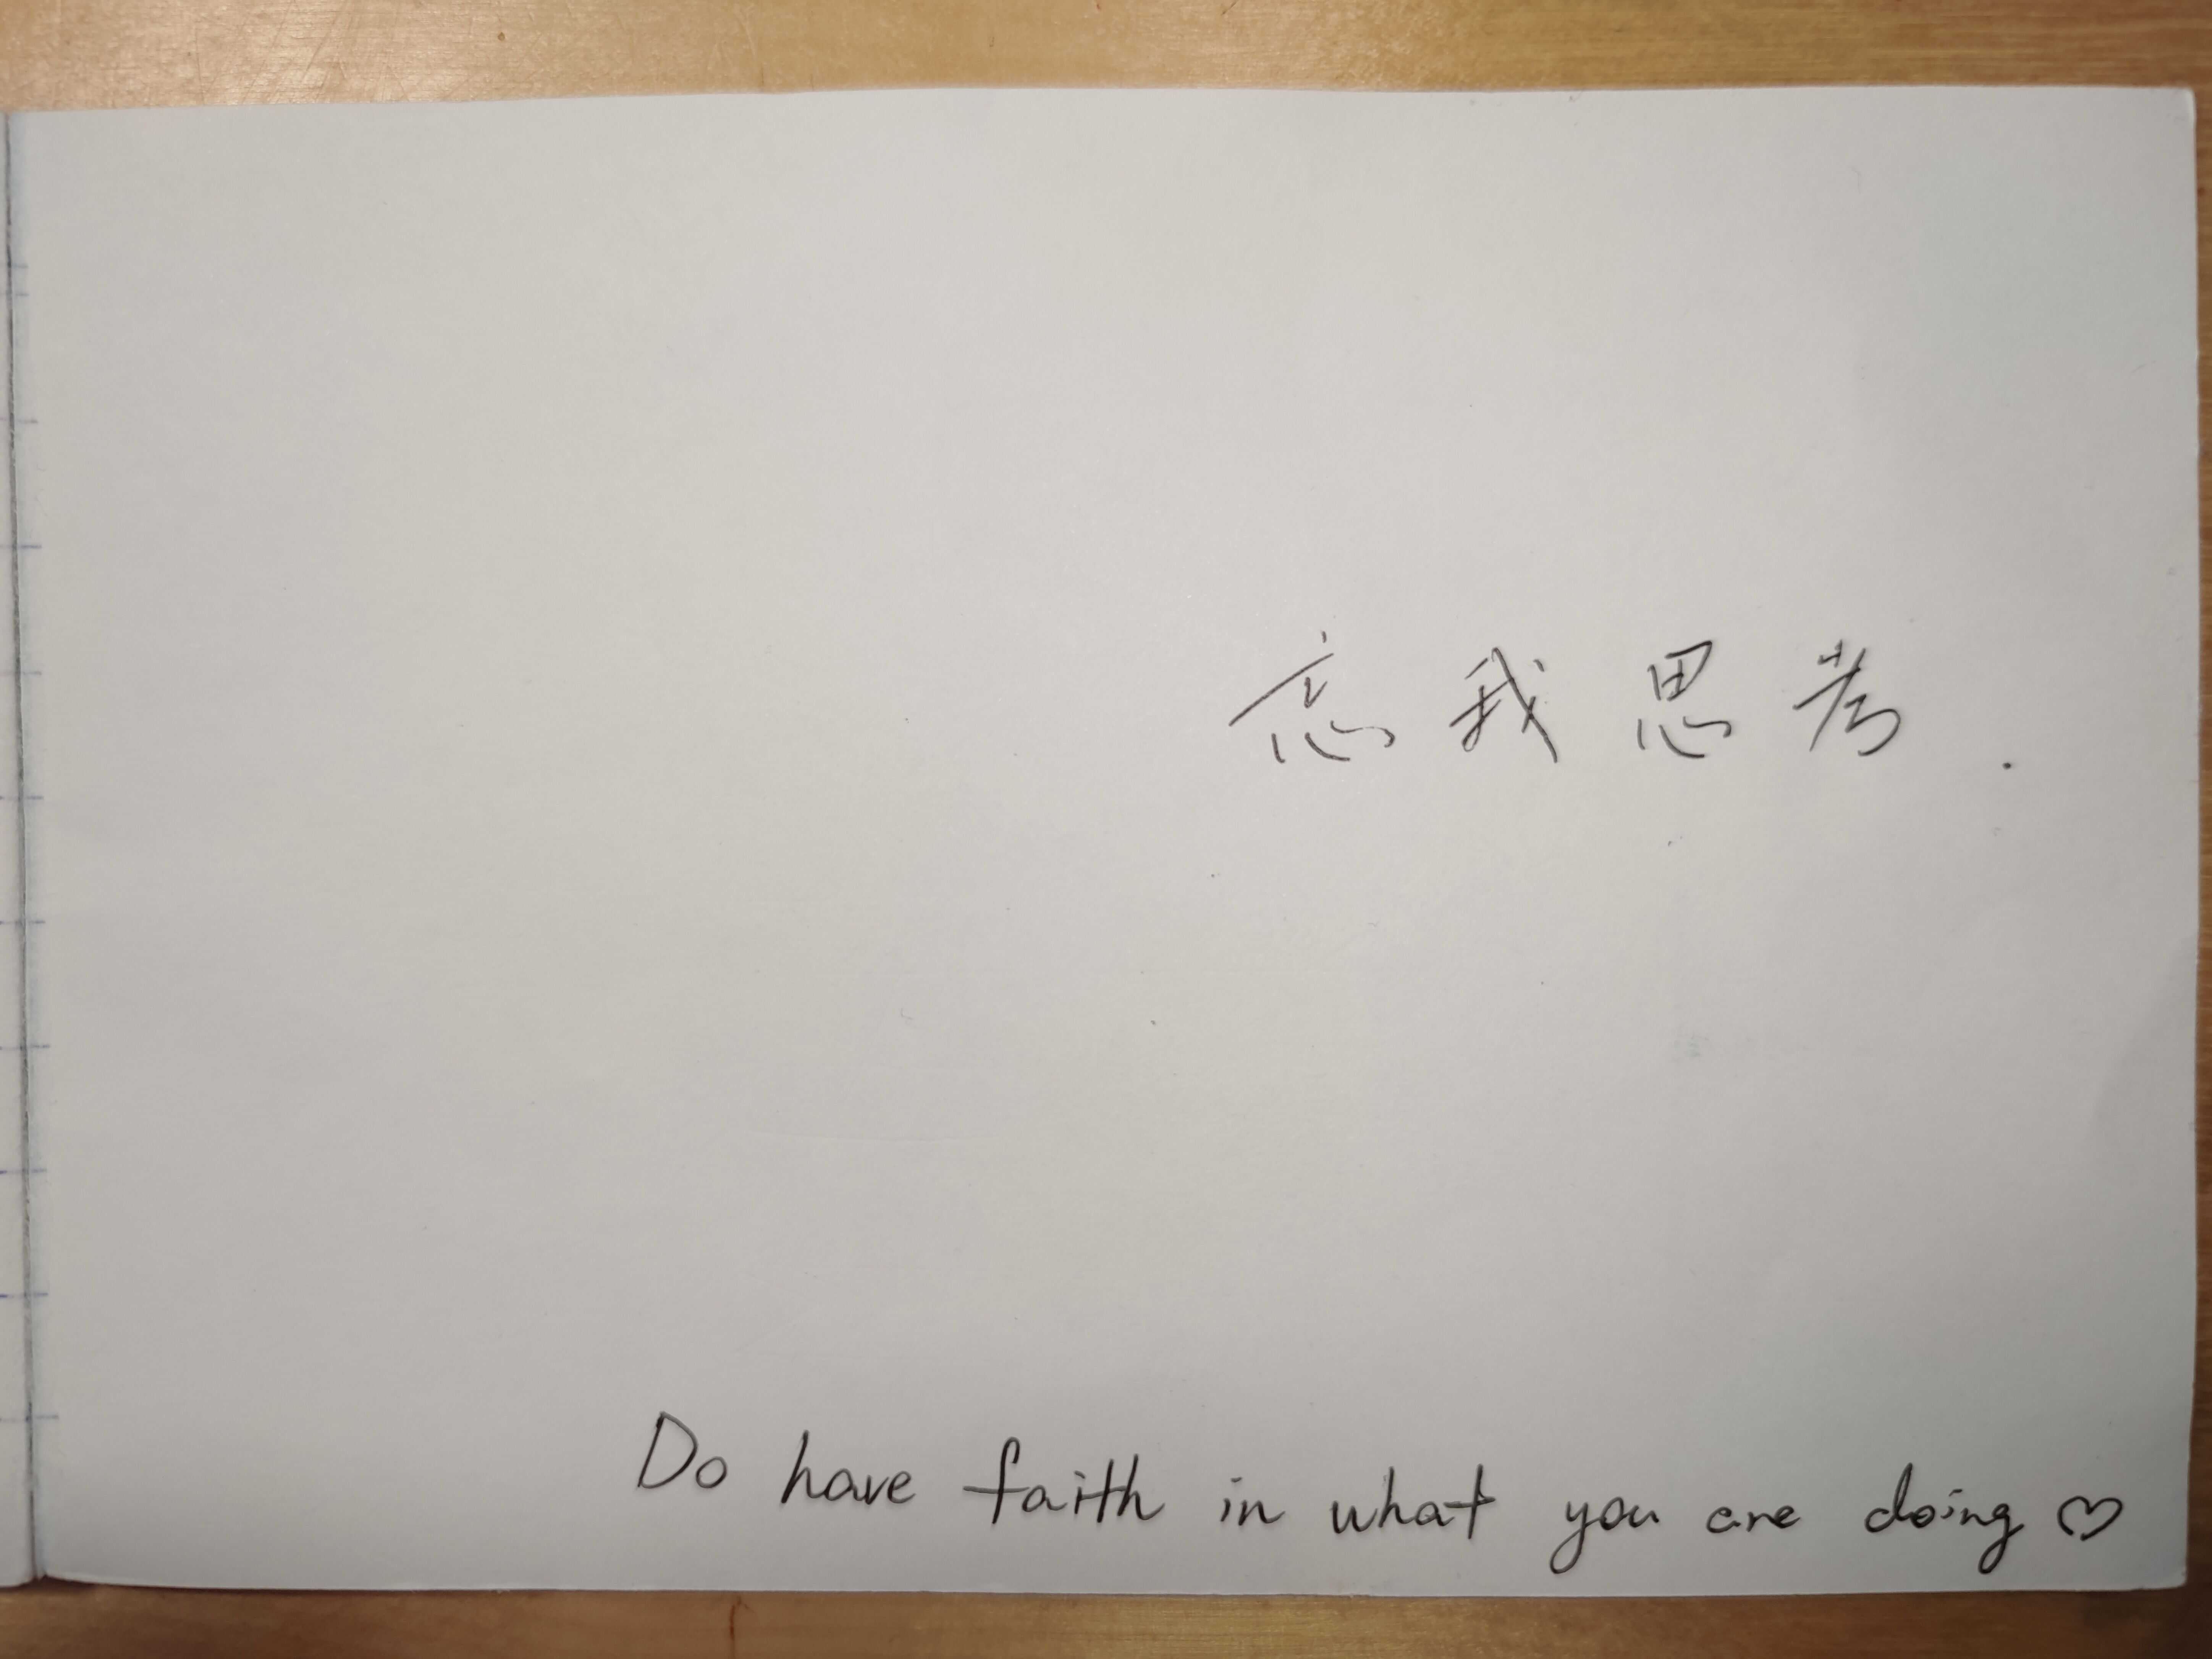 忘我思考.
Do have faith in what you are doing ♡